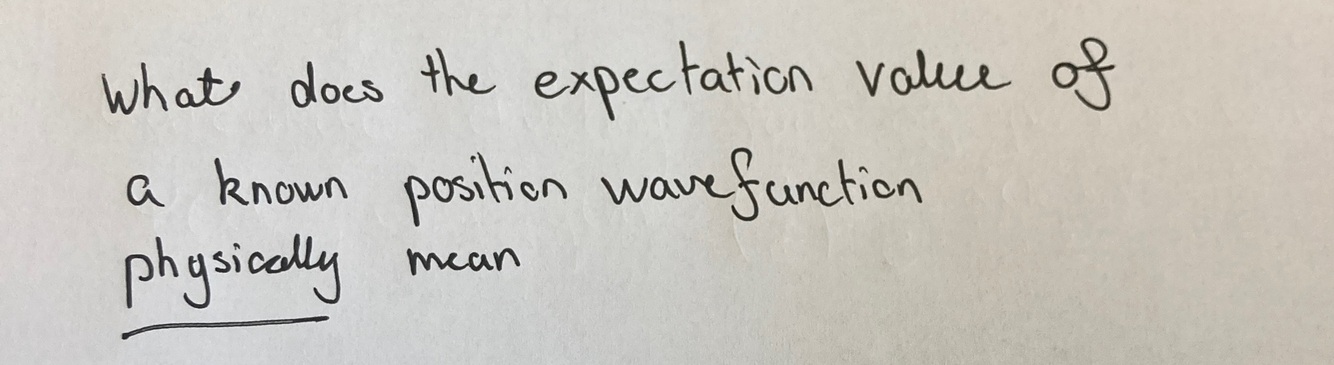 What does the expectation value of
a known position wavefunction
physically mean